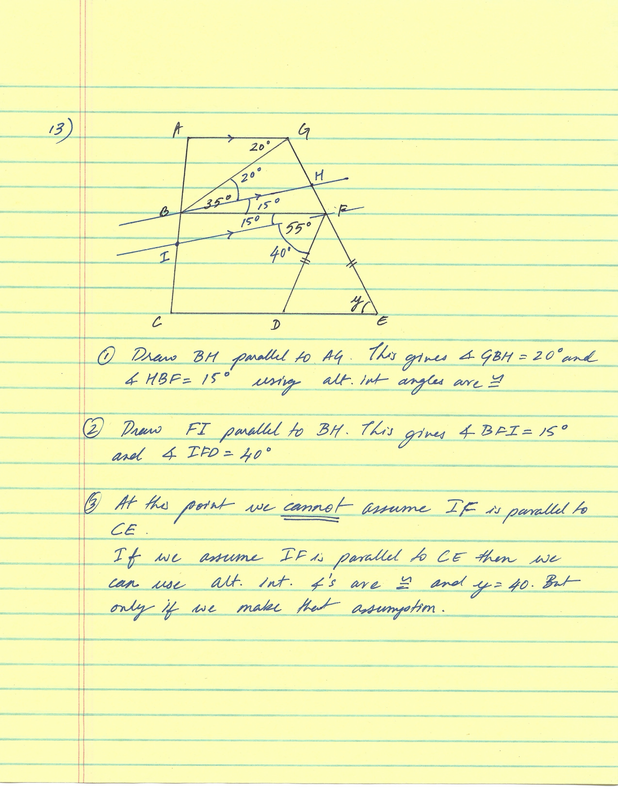 13)
A
G
20°
20°
H
35°
15°
B
F
15°
55°
I
40°
y
C
D
E
① Draw BH parallel to AG. This gives ∡ GBH = 20° and
∡ HBF = 15° using alt. int angles are ≅
② Draw FI parallel to BH. This gives ∡ BFI = 15°
and ∡ IFD = 40°
③ At this point we cannot assume IF is parallel to
CE.
If we assume IF is parallel to CE then we
can use alt. int. ∡'s are ≅ and y = 40. But
only if we make that assumption.